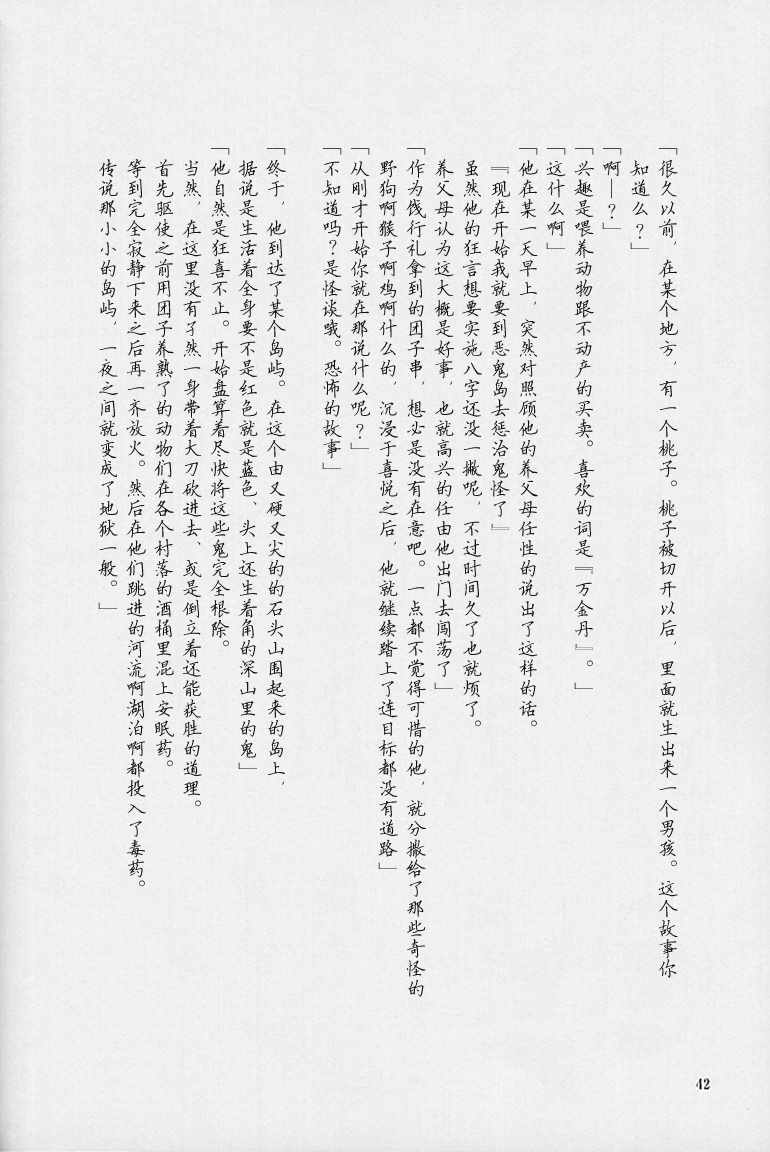 「很久以前，在某个地方，有一个桃子。桃子被切开以后，里面就生出来一个男孩。这个故事你
知道么？」
「啊—？」
「兴趣是喂养动物跟不动产的买卖。喜欢的词是『万金丹』。」
「这什么啊」
「他在某一天早上，突然对照顾他的养父母任性的说出了这样的话。
『现在开始我就要到恶鬼岛去惩治鬼怪了』
虽然他的狂言想要实施八字还没一撇呢，不过时间久了也就烦了。
养父母认为这大概是好事，也就高兴的任由他出门去闯荡了」
「作为饯行礼拿到的团子串，想必是没有在意吧。一点都不觉得可惜的他，就分撒给了那些奇怪的
野狗啊猴子啊鸡啊什么的，沉浸于喜悦之后，他就继续踏上了连目标都没有道路」
「从刚才开始你就在那说什么呢？」
「不知道吗？是怪谈哦。恐怖的故事」
「终于，他到达了某个岛屿。在这个由又硬又尖的的石头山围起来的岛上，
据说是生活着全身要不是红色就是蓝色、头上还生着角的深山里的鬼」
「他自然是狂喜不止。开始盘算着尽快将这些鬼完全根除。
当然，在这里没有孑然一身带着大刀砍进去、或是倒立着还能获胜的道理。
首先驱使之前用团子养熟了的动物们在各个村落的酒桶里混上安眠药。
等到完全寂静下来之后再一齐放火。然后在他们跳进的河流啊湖泊啊都投入了毒药。
传说那小小的岛屿，一夜之间就变成了地狱一般。」
42